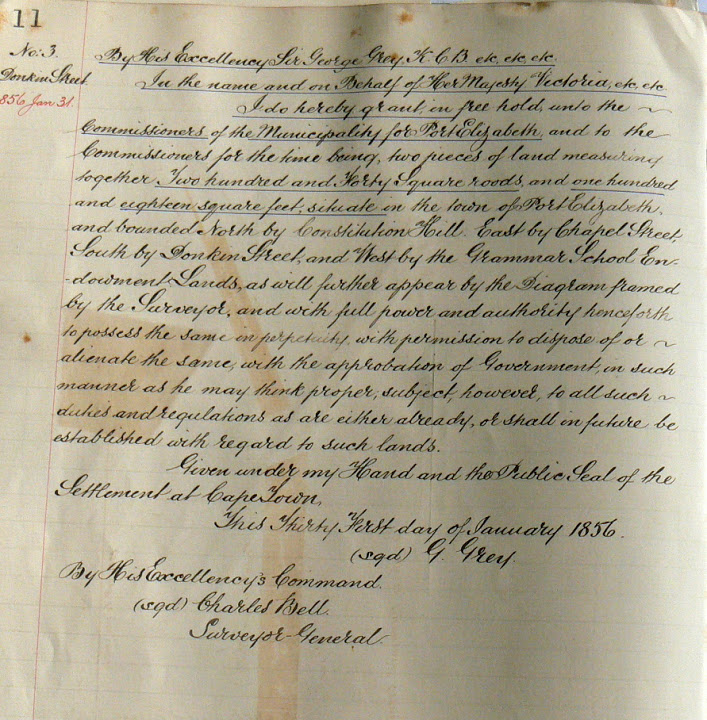 11
No: 3.
Donkin Street.
1856 Jan 31.
By His Excellency Sir George Grey, K.C.B. etc, etc, etc.
In the name and on Behalf of Her Majesty Victoria, etc, etc
I do hereby grant, in free hold, unto the ~
Commissioners of the Municipality for Port Elizabeth, and to the
Commissioners for the time being, two pieces of land measuring
together Two hundred and Forty Square roods, and one hundred
and eighteen square feet, situate in the town of Port Elizabeth,
and bounded North by Constitution Hill. East by Chapel Street,
South by Donkin Street, and West by the Grammar School En-
-dowment Lands, as will further appear by the Diagram framed
by the Surveyor, and with full power and authority henceforth
to possess the same in perpetuity, with permission to dispose of or ~
alienate the same, with the approbation of Government, in such
manner as he may think proper, subject, however, to all such ~
duties and regulations as are either already, or shall in future be
established with regard to such lands.
Given under my Hand and the Public Seal of the
Settlement at Cape Town,
This Thirty First day of January 1856.
(sgd) G. Grey.
By His Excellency's Command.
(sgd) Charles Bell.
Surveyor-General.